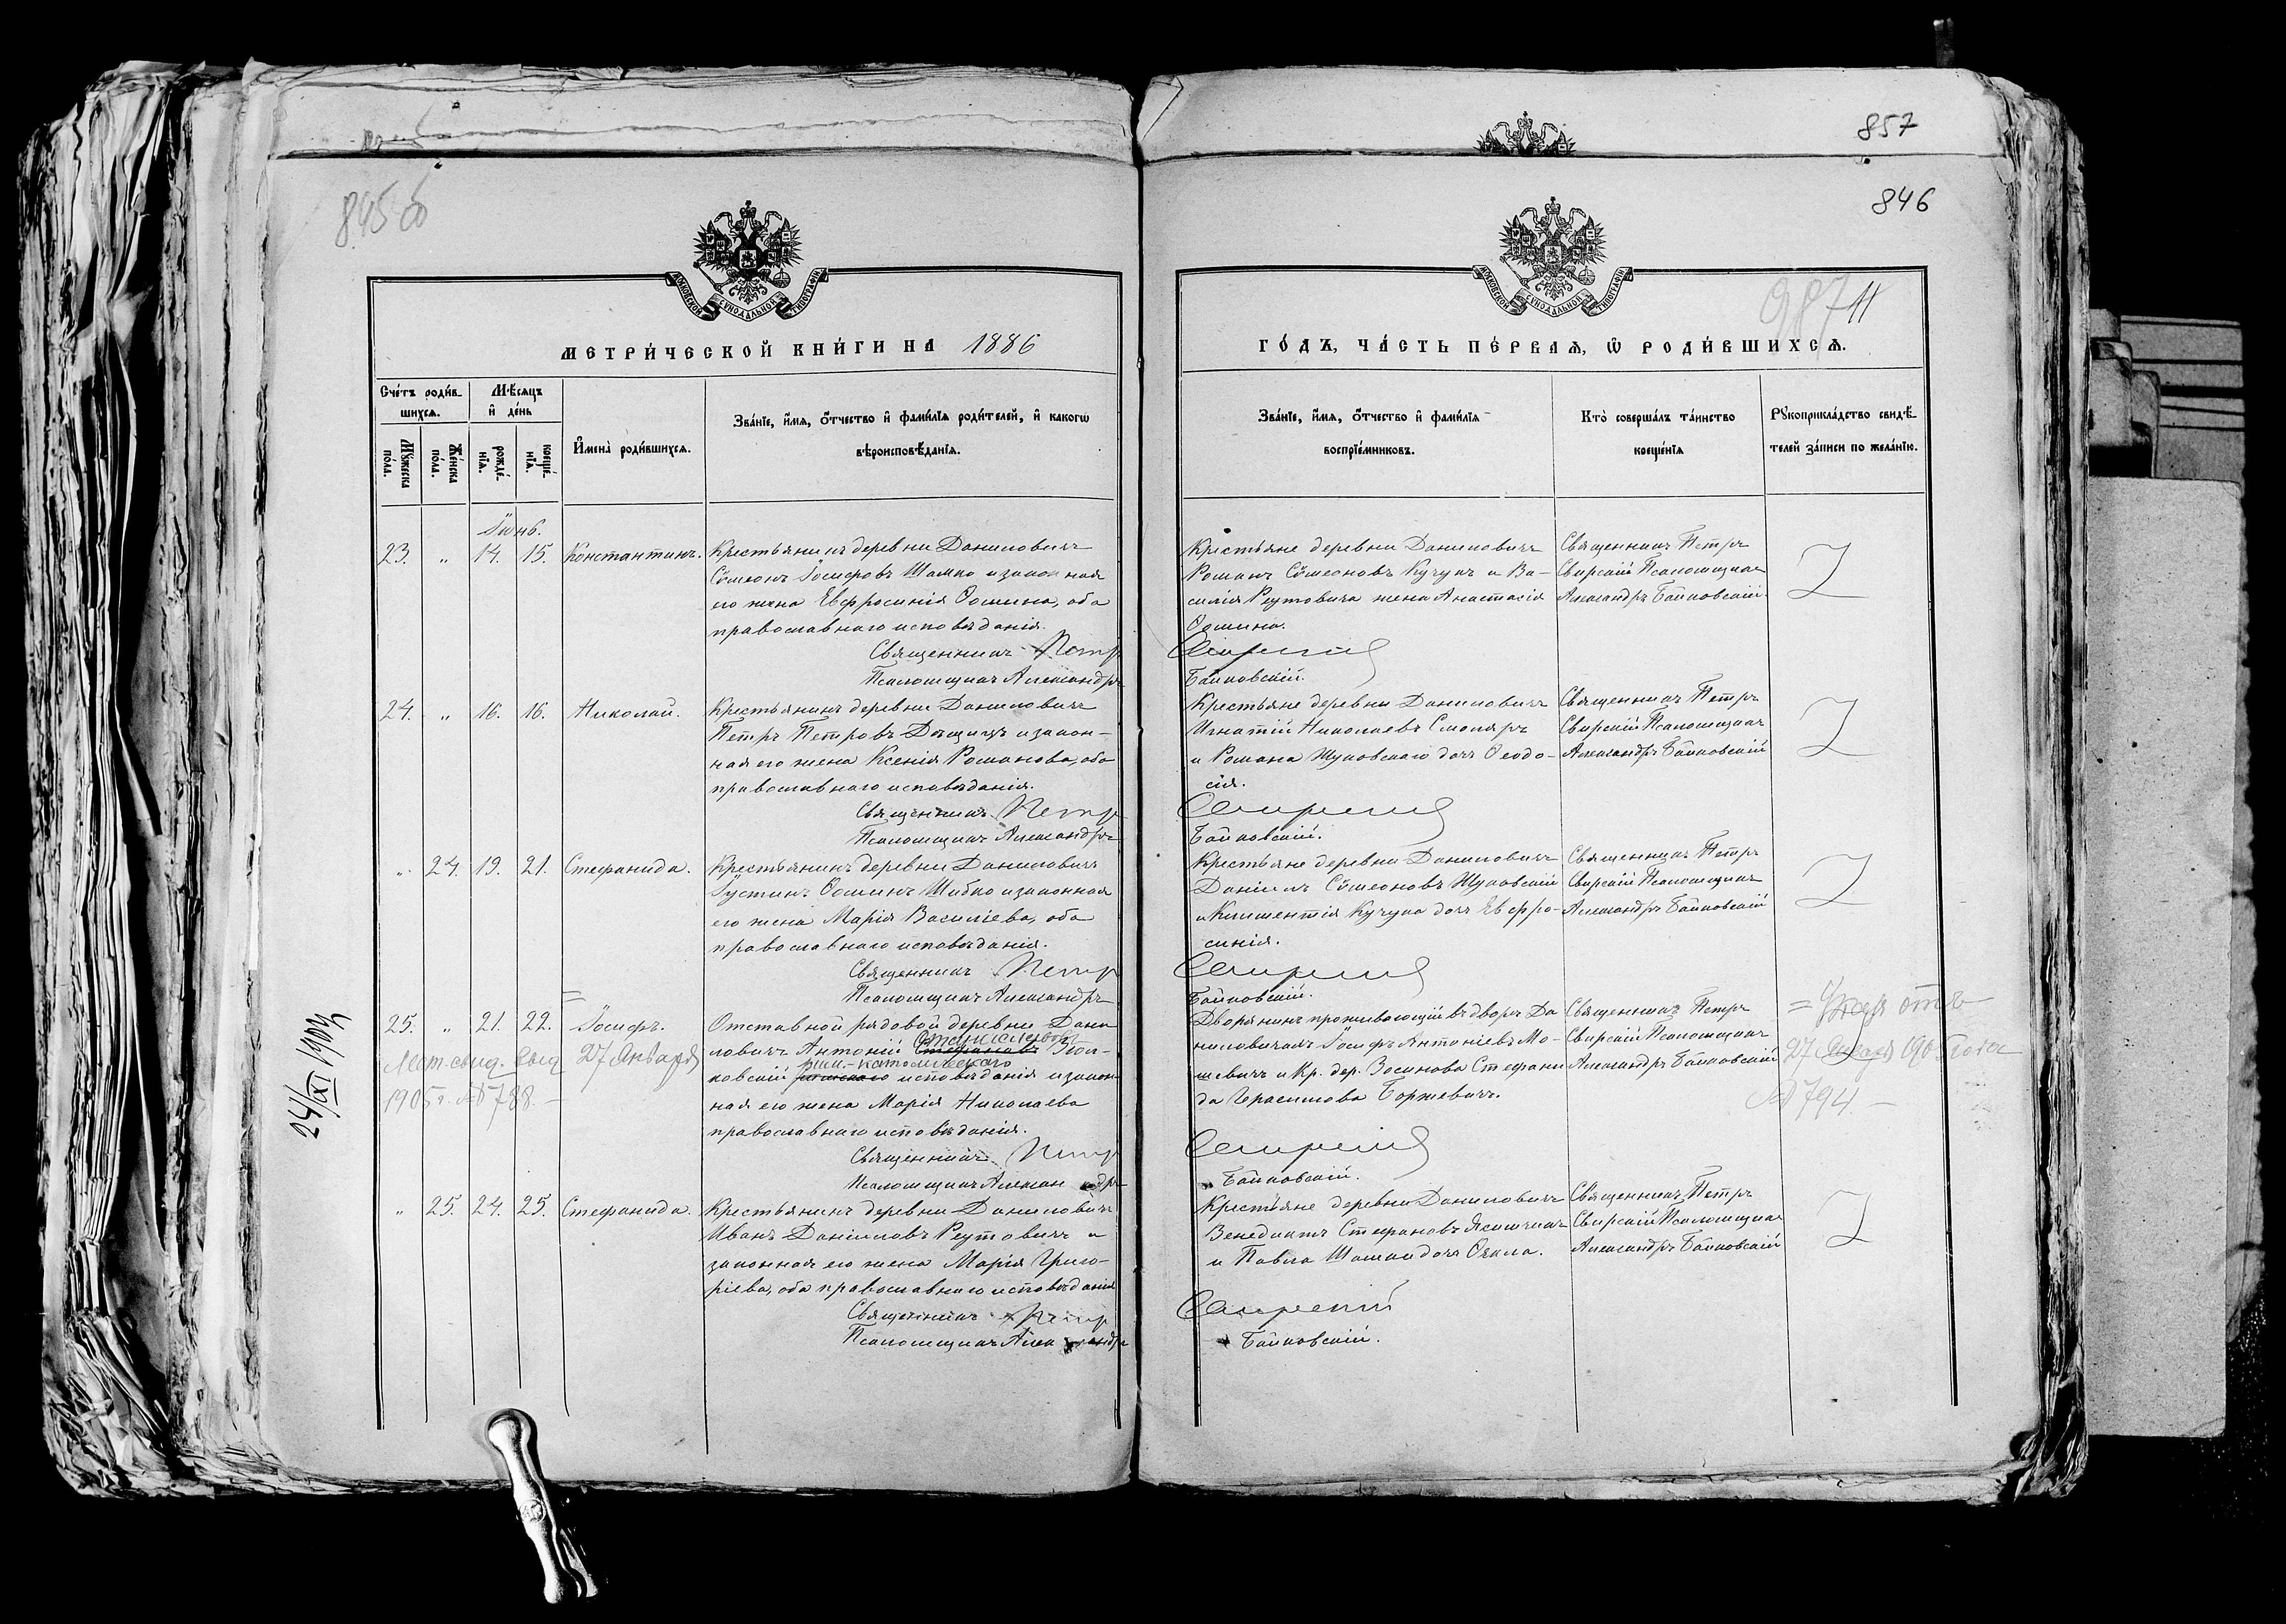 857
845 об
846
987 11
МОСКОВСКОЙ СУНОДАЛЬНОЙ ТИПОГРАФІИ
МОСКОВСКОЙ СУНОДАЛЬНОЙ ТИПОГРАФІИ
МЕТРИ́ЧЕСКОЙ КНИ́ГИ НА 1886
ГО́ДЪ, ЧА́СТЬ ПЕ́РВАЯ, Ѡ҆ РОДИ́ВШИХСЯ.
Сче́тъ роди́вшихся.
Мꙋжеска по́ла.
Же́нска по́ла.
Мѣ́сяцъ и҆ де́нь
рожде́нїя.
креще́нїя.
И҆мена̀ роди́вшихся.
Зва́нїе, и҆́мя, ѻ҆́тчество и҆ фами́лїя роди́телей, и҆ какогѡ
вѣроисповѣ́данїя.
Зва́нїе, и҆́мя, ѻ҆́тчество и҆ фами́лїя
воспрїе́мниковъ.
Кто̀ соверша́лъ та́инство
креще́нїя
Рꙋкоприкла́дство свидѣ́-
телей за́писи по жела́нїю.
Іюнь.
23. " 14. 15. Константинъ.
Крестьянинъ деревни Даниловичъ
Сѵмеонъ Іосифовъ Шамко и законная
его жена Евфросинія Ѳомина, оба
православнаго исповѣданія.
Священникъ Петр
Псаломщикъ Александръ
Крестьяне деревни Даниловичъ
Романъ Сѵмеоновъ Кучукъ и Ва-
силія Реутовича жена Анастасія
Ѳомина.
Свирскій
Байковскій.
Священникъ Петръ
Свирскій Псаломщикъ
Александръ Байковскій.
24. " 16. 16. Николай.
Крестьянинъ деревни Даниловичъ
Петръ Петровъ Дѣщицъ и закон-
ная его жена Ксенія Романова, оба
православнаго исповѣданія.
Священникъ Петр
Псаломщикъ Александръ
Крестьяне деревни Даниловичъ
Игнатій Николаевъ Смоляръ
и Романа Жуковскаго дочь Ѳеодо-
сія.
Свирскій
Байковскій.
Священникъ Петръ
Свирскій Псаломщикъ
Александръ Байковскій
" 24. 19. 21. Стефанида.
Крестьянинъ деревни Даниловичъ
Іустинъ Ѳоминъ Шибко и законная
его жена Марія Василіева, оба
православнаго исповѣданія.
Священникъ Петр
Псаломщикъ Александръ
Крестьяне деревни Даниловичъ
Даніилъ Сѵмеоновъ Жуковскій
и Климентія Кучука дочь Евфро-
синія.
Свирскій
Байковскій.
Священникъ Петръ
Свирскій Псаломщикъ
Александръ Байковскій
25. " 21. 22. Іосифъ.
24/XI 1904
27 Января
1905 г. № 788.
Отставной рядовой деревни Дани
ловичъ Антоній Станиславовъ
ковскій рим.-католическаго исповѣданія и закон-
ная его жена Марія Николаева
православнаго исповѣданія.
Священникъ Петр
Псаломщикъ Александръ
Дворянинъ проживающій въ дворѣ Да
ниловичахъ Іосифъ Антоніевъ Мо-
шевичъ и Кр. дер. Зосинова Стефани
да Герасимова Боржевичъ.
Свирскій
Байковскій.
Священникъ Петръ
Свирскій Псаломщикъ
Александръ Байковскій
отъ
27 Января 190 Года
№ 794
" 25. 24. 25. Стефанида.
Крестьянинъ деревни Даниловичъ
Иванъ Даніиловъ Реутовичъ и
законная его жена Марія Григо-
ріева, оба православнаго исповѣданія
Священникъ Петр
Псаломщикъ Александр
Крестьяне деревни Даниловичъ
Венедиктъ Стефановъ Ясючикъ
и Павла Шамки дочь Ѳекла.
Свирскій
Байковскій.
Священникъ Петръ
Свирскій Псаломщикъ
Александръ Байковскій